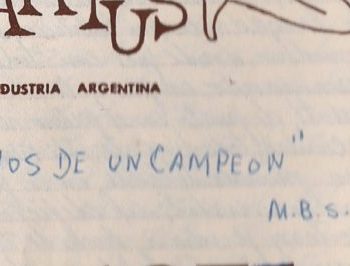 DUSTRIA ARGENTINA
OS DE UN CAMPEON"
M.B.S.